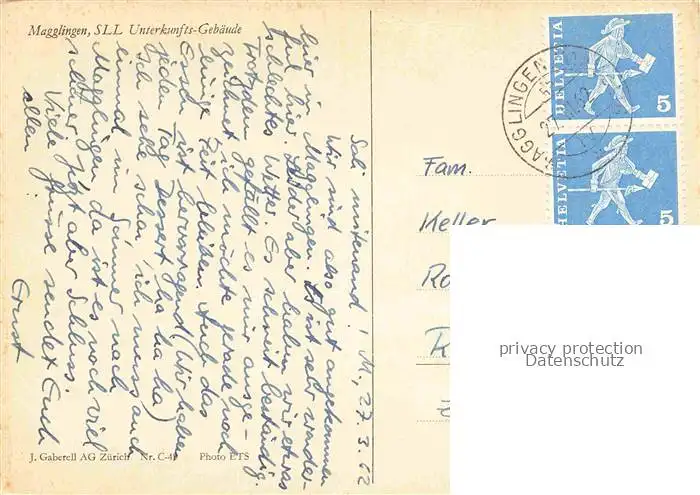 Magglingen, SLL Unterkunfts-Gebäude
Sali mitenand! M., 27.3.62
Wir sind also gut angekommen
hier in Magglingen. Es ist sehr wunder-
ful hier. Leider aber haben wir etwas
schlechtes Wetter. Es schneit beständig.
Trotzdem gefällt es mir ausge-
zeichnet. Ich möchte gerade noch
einige Zeit bleiben. Auch das
Essen ist hervorragend (Wir haben
jeden Tag Dessert ha ha ha)
Ich sehe schon, ich muss auch
einmal im Sommer nach
Magglingen, da ist es noch viel
schöner. Jetzt aber Schluss.
Viele Grüsse sendet Euch
allen
Ernst
J. Gaberell AG Zürich Nr. C-49 Photo ETS
Fam.
Keller
HELVETIA
5
HELVETIA
5
MAGGLINGEN
privacy protection
Datenschutz